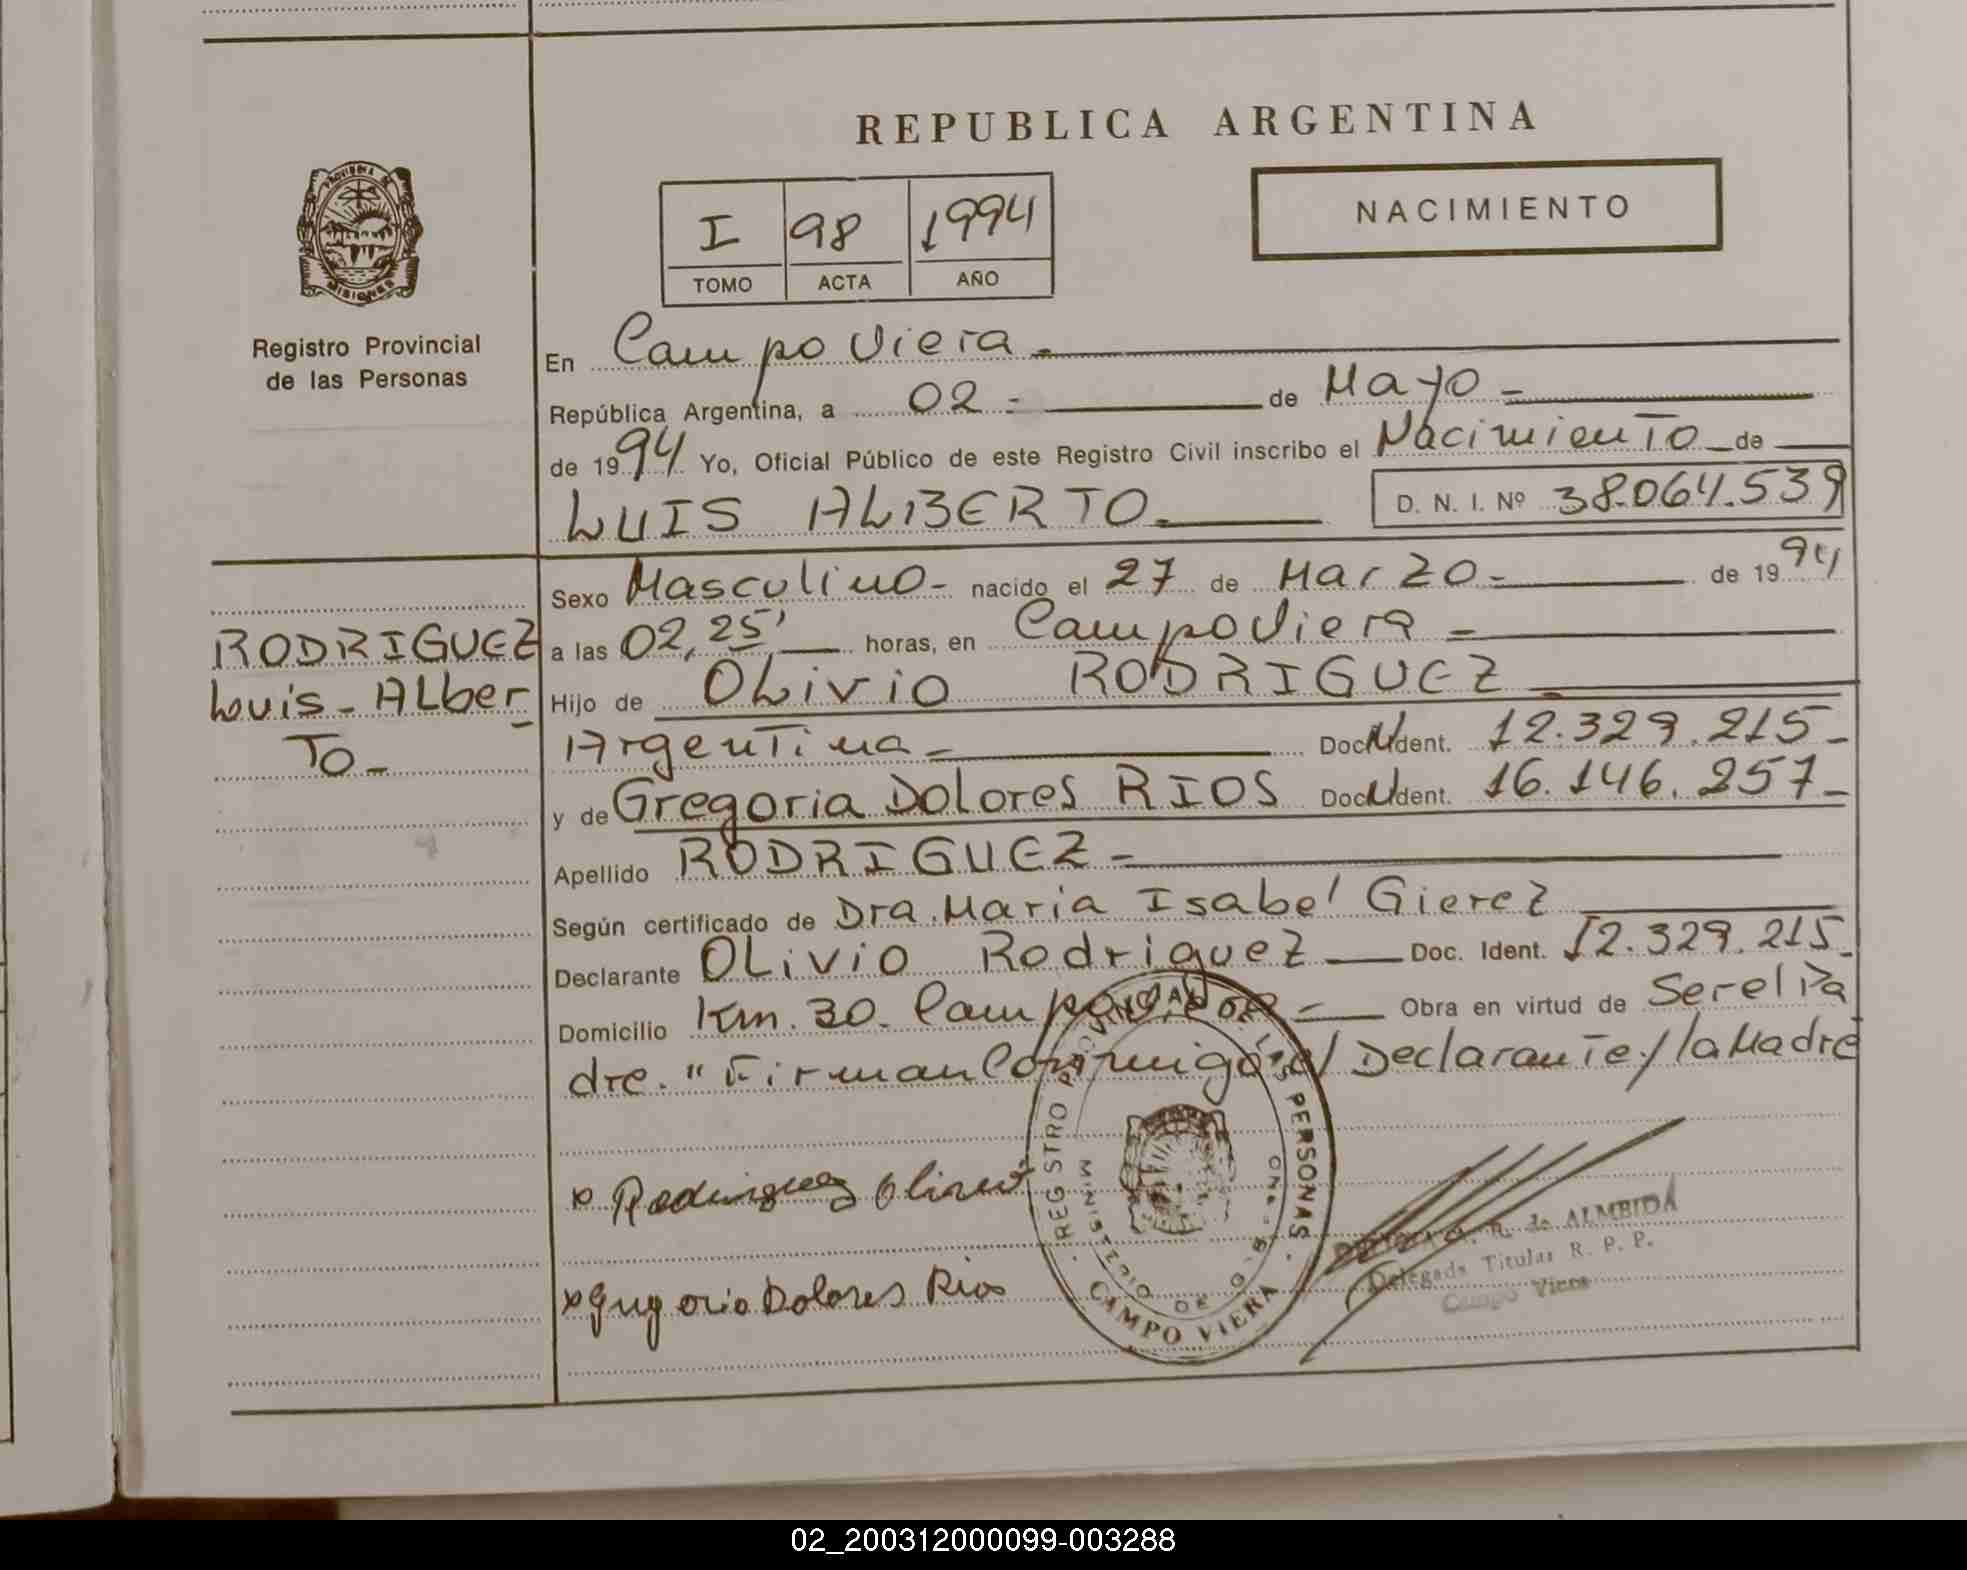 REPUBLICA ARGENTINA
PROVINCIA DE
MISIONES
Registro Provincial
de las Personas
I 98 1994
TOMO ACTA AÑO
NACIMIENTO
En Campo Viera -
República Argentina, a 02 - de Mayo -
de 1994 Yo, Oficial Público de este Registro Civil inscribo el Nacimiento de
LUIS ALBERTO - D. N. I. Nº 38.064.539
RODRIGUEZ
Luis - Alber
To -
Sexo Masculino - nacido el 27 de Marzo - de 1994
a las 02,25' horas, en Campo Viera -
Hijo de OLivio RODRIGUEZ -
Argentina - Doc. Ident. 12.329.215 -
y de Gregoria Dolores RIOS Doc. Ident. 16.146.257 -
Apellido RODRIGUEZ -
Según certificado de Dra. Maria Isabel Gierez
Declarante OLivio Rodriguez Doc. Ident. 12.329.215 -
Domicilio Km. 30. Campo Viera - Obra en virtud de Serel Pa
dre. " Firman Conmigo el Declarante y la Madre
Rodriguez Olivio
Gregoria Dolores Rios
REGISTRO PROVINCIAL DE LAS PERSONAS
MINISTERIO DE GOB.
CAMPO VIERA
R. de ALMEIDA
Delegada Titular R. P. P.
Campo Viera
02_200312000099-003288